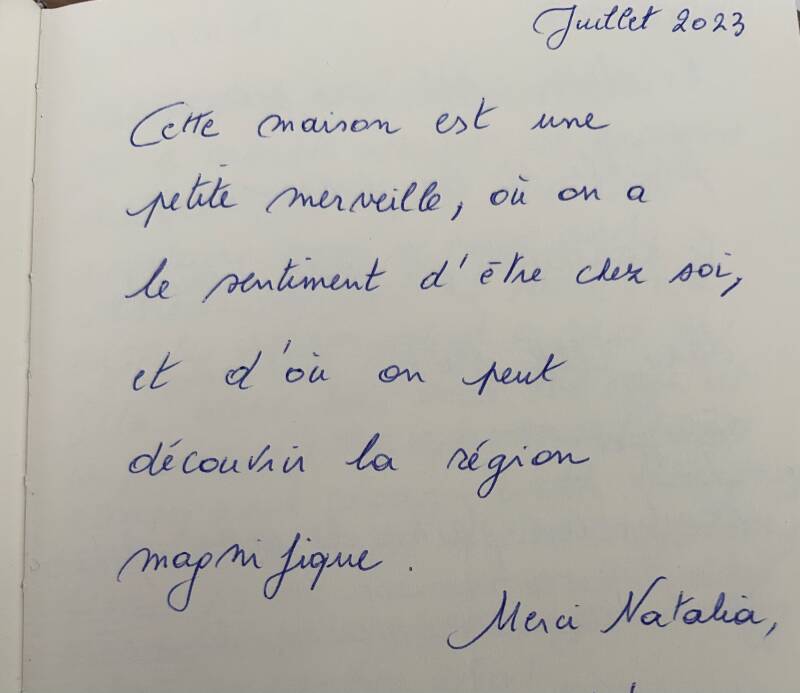 Juillet 2023
Cette maison est une
petite merveille, où on a
le sentiment d'être chez soi,
et d'où on peut
découvrir la région
magnifique.
Merci Natalia,